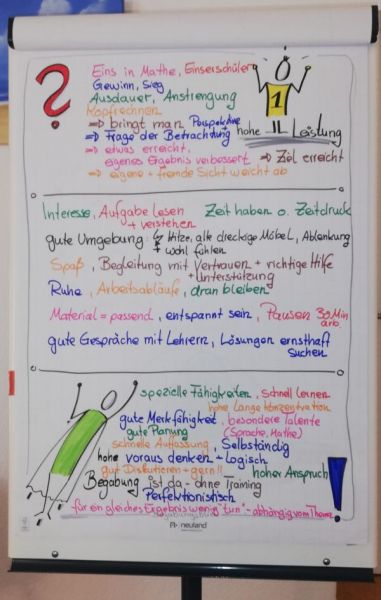 Eins in Mathe, Einserschüler
Gewinn, Sieg
Ausdauer, Anstrengung
Kopfrechnen
⇒ bringt man Perspektive
⇒ Frage der Betrachtung
hohe Leistung
1
⇒ etwas erreicht.
eigenes Ergebnis verbessert ⇒ Ziel erreicht
⇒ eigene + fremde Sicht weicht ab
Interesse, Aufgabe lesen + verstehen
Zeit haben o. Zeitdruck
gute Umgebung: Hitze, alte dreckige Möbel, Ablenkung
wohl fühlen
Spaß, Begleitung mit Vertrauen + richtige Hilfe
+ Unterstützung
Ruhe, Arbeitsabläufe, dran bleiben
Material = passend, entspannt sein, Pausen 30 Min
arb.
gute Gespräche mit Lehrern, Lösungen ernsthaft
suchen
spezielle Fähigkeiten, schnell lernen
hohe Lange Konzentration
gute Merkfähigkeit, besondere Talente
gute Planung (Sprache, Mathe)
schnelle Auffassung, Selbständig
hohe voraus denken - Logisch
gut Diskutieren - gern!! hoher Anspruch
Begabung ist da - ohne Training
Perfektionistisch
für ein gleiches Ergebnis wenig "tun" - abhängig vom Thema
neuland